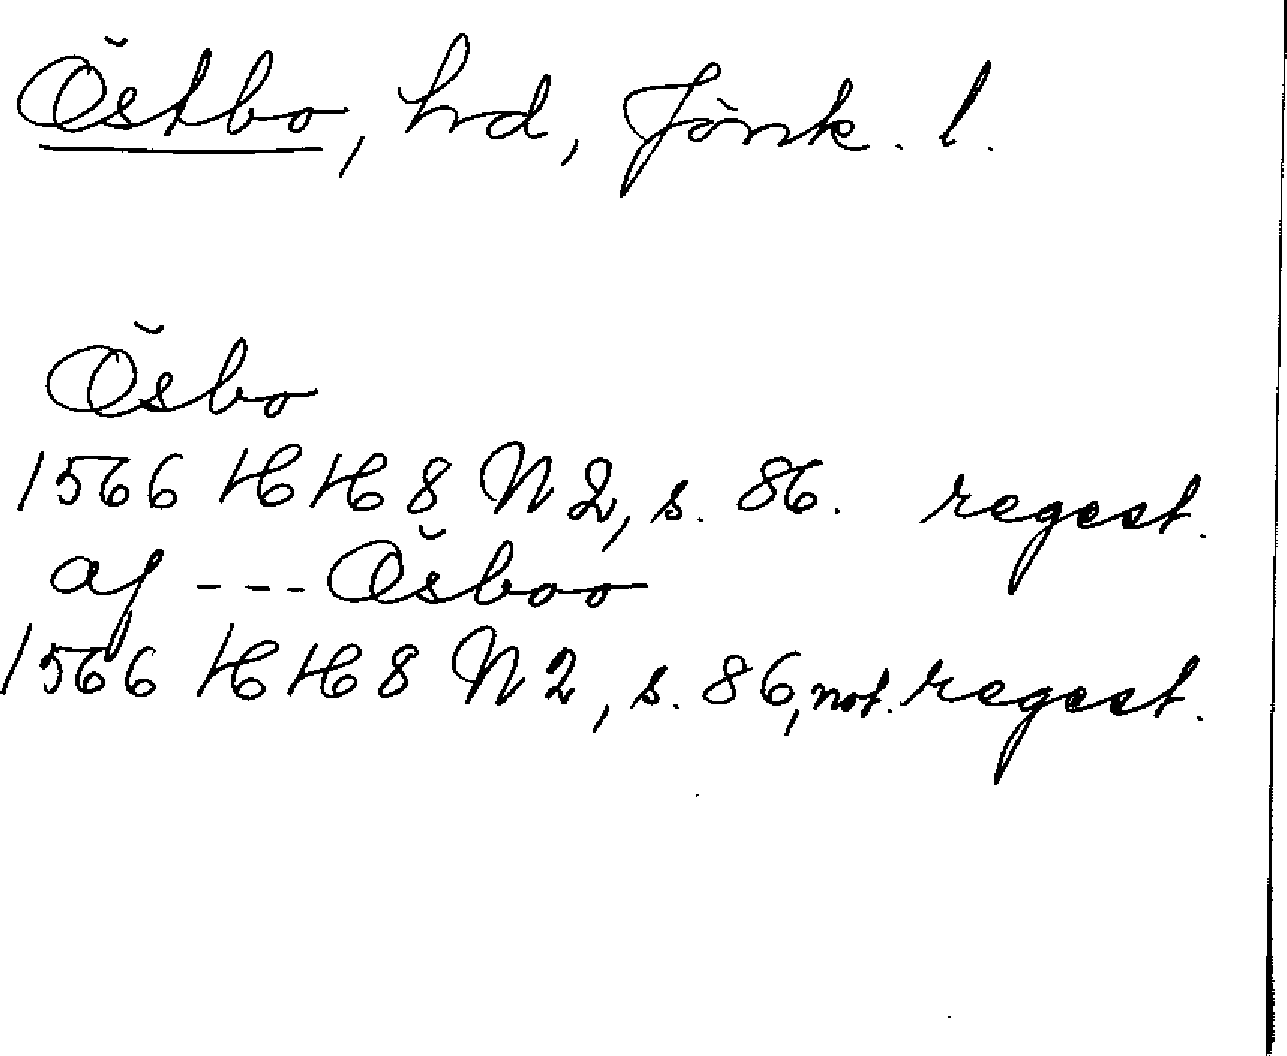 Östbo, hd, Jönk. l.
Ösbo
1566 HH 8 N 2, s. 86. regest.
af --- Ösboo
1566 HH 8 N 2, s. 86, not. regest.